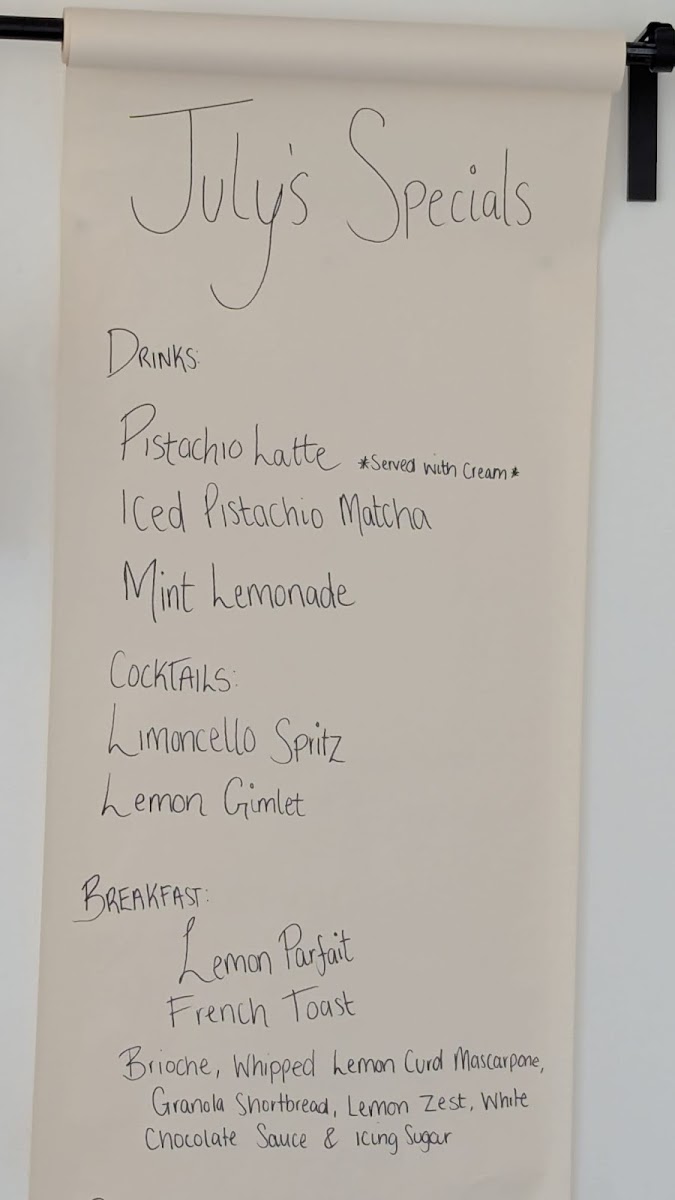 July's Specials
DRINKS:
Pistachio Latte *Served with Cream*
Iced Pistachio Matcha
Mint Lemonade
COCKTAILS:
Limoncello Spritz
Lemon Gimlet
BREAKFAST:
Lemon Parfait
French Toast
Brioche, Whipped Lemon Curd Mascarpone,
Granola Shortbread, Lemon Zest, White
Chocolate Sauce & icing Sugar